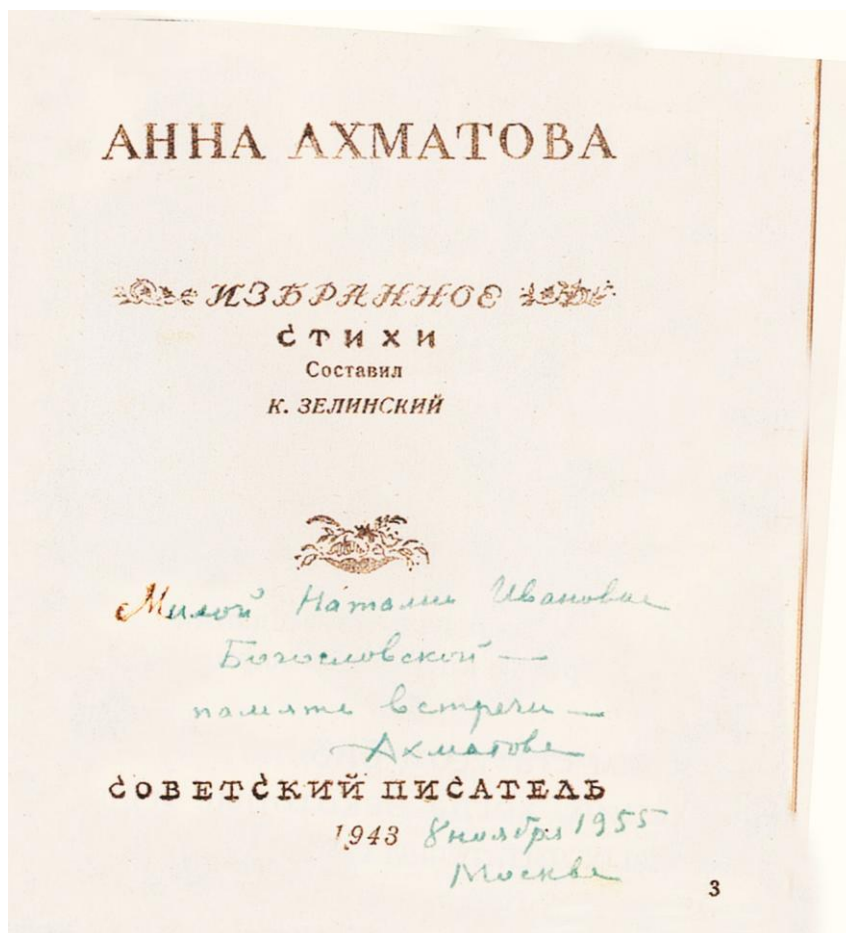 АННА АХМАТОВА
ИЗБРАННОЕ
СТИХИ
Составил
К. ЗЕЛИНСКИЙ
Милой Наталии Ивановне
Богословской —
память встречи —
Ахматова
СОВЕТСКИЙ ПИСАТЕЛЬ
1943 8 ноября 1955
Москва
3